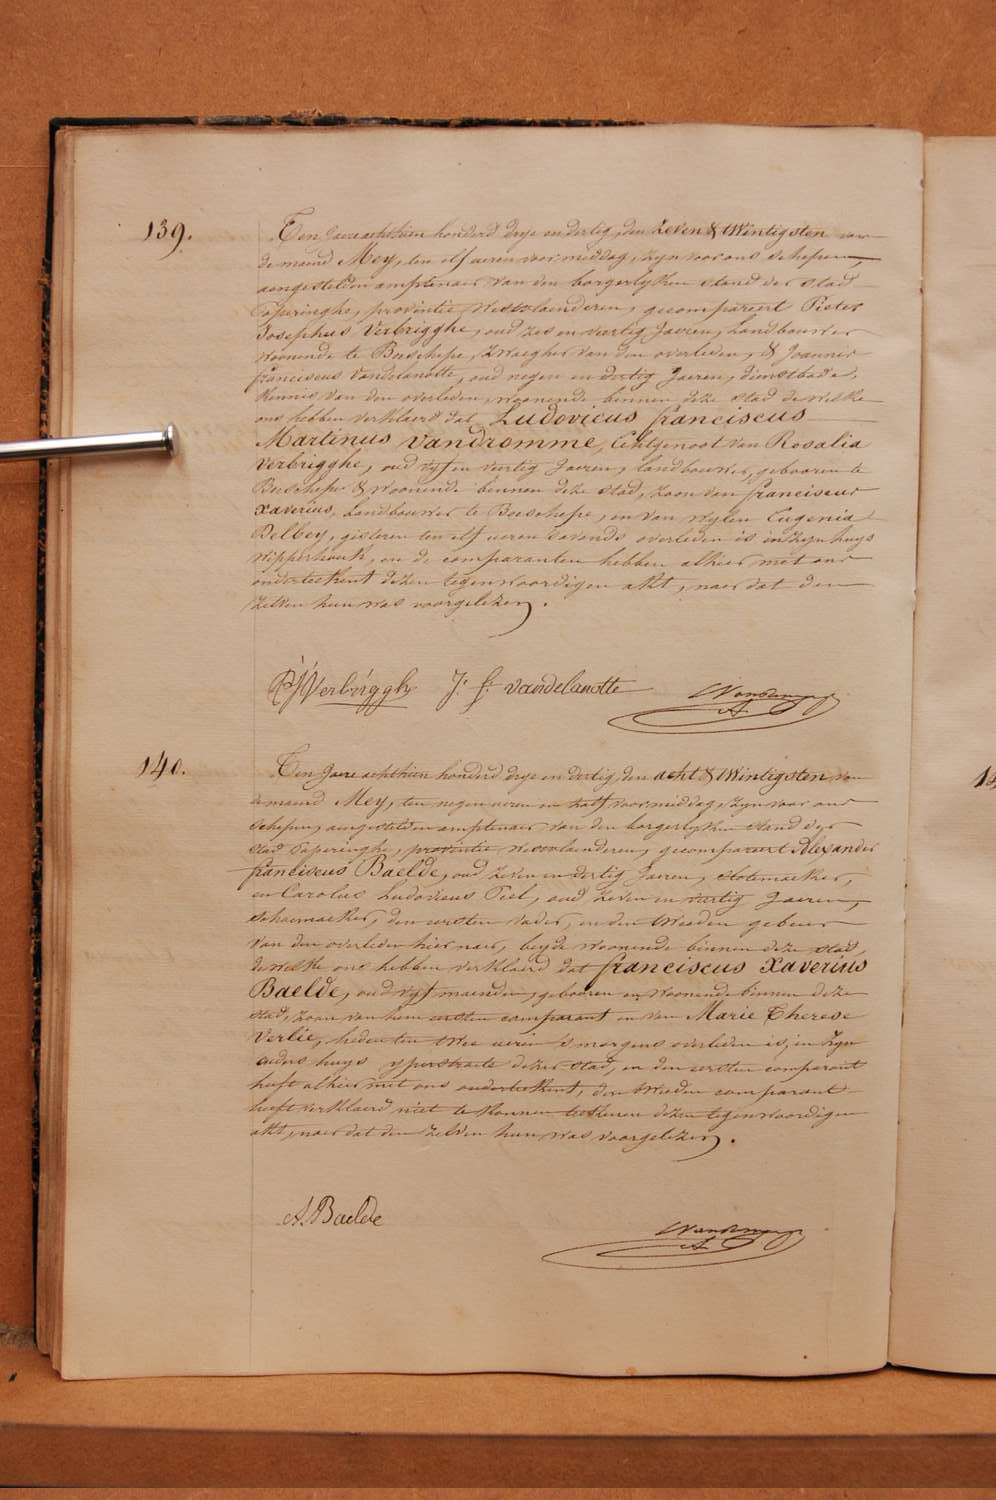 139.
Ten Jaere achthien honderd drye en dertig, den zeven & twintigsten van
de maend Mey, ten elf ueren voormiddag, zyn voor ons schepen,
aengestelden amptenaer van den borgerlyken stand der stad
Poperinghe, provintie Westvlaenderen, gecompareert Pieter
Josephus Verbrigghe, oud zes en veertig Jaeren, Landbouwer
woonende te Boeschepe, zwaegher van den overleden, & Joannes
franciscus Vandelanotte, oud negen en dertig Jaeren, dienstbode,
kennis van den overleden, woonende binnen deze stad de welke
ons hebben verklaerd dat Ludovicus franciscus
Martinus Vandromme, Echtgenoot van Rosalia
Verbrigghe, oud vyf en veertig Jaeren, landbouwer, gebooren te
Boeschepe & woonende binnen deze stad, zoon van franciscus
Xaverius, Landbouwer te Boeschepe, en van wylen Eugenia
Delbey, gisteren ten elf ueren savonds overleden is in zyn huys
Wipperhoek, en de comparanten hebben alhier met ons
onderteekent dezen tegenwoordigen akt, naer dat den
zelven hun was voorgelezen.
P J Verbrigghe J. f. vandelanotte
140.
Ten Jaere achthien honderd drye en dertig, den acht & twintigsten van
de maend Mey, ten negen ueren en half voormiddag, zyn voor ons
schepen, aengestelden amptenaer van den borgerlyken stand der
stad Poperinghe, provintie Westvlaenderen, gecompareert Alexander
franciscus Baelde, oud zeven en dertig Jaeren, slotemaeker,
en Carolus Ludovicus Tiel, oud zeven en veertig Jaeren,
schoemaeker, den eersten vader, en den tweeden gebuer
van den overleden hier naer, beyde woonende binnen deze stad,
de welke ons hebben verklaerd dat franciscus Xaverius
Baelde, oud vyf maenden, gebooren en woonende binnen deze
stad, zoon van hem eersten comparant en van Marie Therese
Verlie, heden ten twee ueren 's morgens overleden is, in zyn
ouders huys yperstraete dezer stad, en den eersten comparant
heeft alhier met ons onderteekent, den tweeden comparant
heeft verklaerd niet te konnen teekenen dezen tegenwoordigen
akt, naer dat den zelven hun was voorgelezen.
A. Baelde